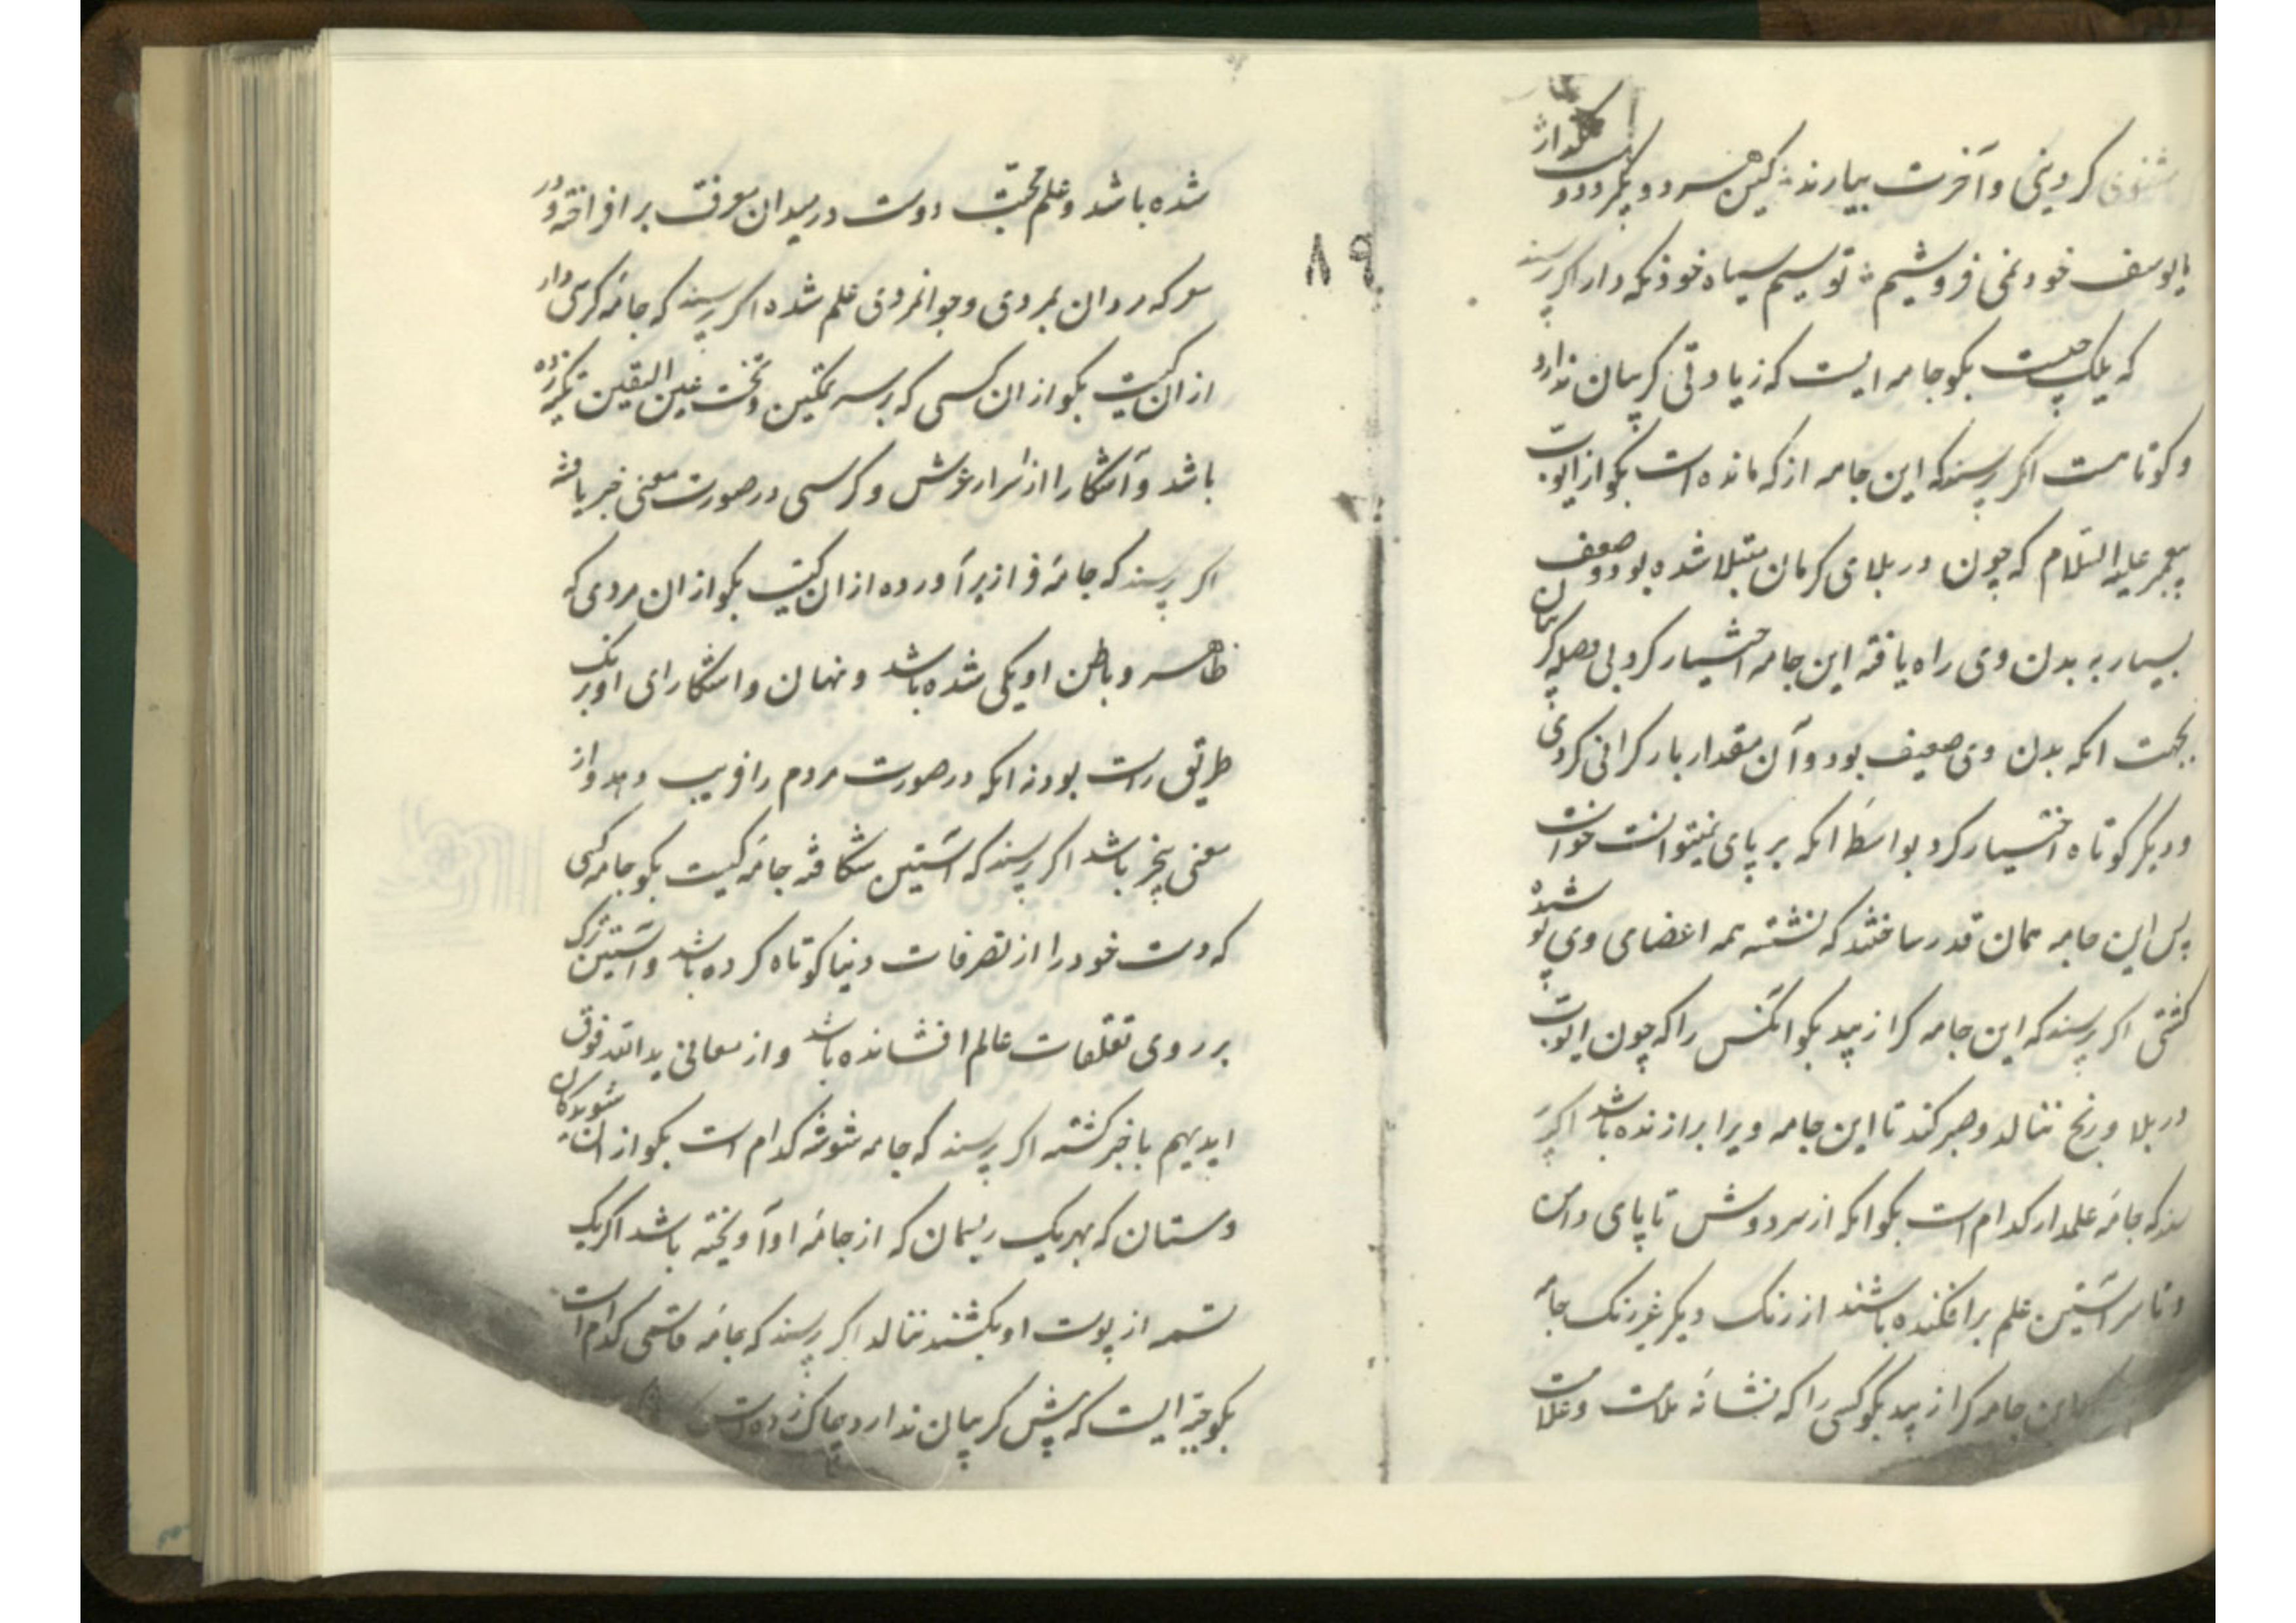 کر دینی و آخرت بیارند کین هر دو بگیر و دوست بگذار
ما یوسف خود نمی فروشیم تو سیم سیاه خود نکه دار اکر پرسند
که یلک چیست بکو جامه ایست که زیادتی کریبان ندارد
و کوتاهست اکر پرسند که این جامه از که مانده است بکو از ایوب
پیغمبر علیه السلام که چون در بلای کرمان مبتلا شده بود و ضعف
بسیار به بدن وی راه یافته این جامه اختیار کرد بی وصله کریبان
بجهت انکه بدن وی ضعیف بود و آن مقدار بار کرانی کردی
و دیکر کوتاه اختیار کرد بواسطه انکه بر پای نمیتوانست خواست
پس این جامه همان قدر ساختند که نشسته همه اعضای وی پوشیده
کشتی اکر پرسند که این جامه کرا زیبد بکو انکس را که چون ایوب
در بلا و رنج ننالد و صبر کند تا این جامه ویرا برازنده باشد اکر پر
سند که جامهٔ علمدار کدام است بکو انکه از سر دوش تا پای دامن
و تا سر آستین علم بر افکنده باشند از رنک دیکر غیر رنک جامه
این جامه کرا زیبد بکو کسی را که نشانهٔ ملامت و علامت
۸۹
شده باشد و علم محبت دوست در میدان معرفت بر افراخته و در
معرکه مردان بمردی و جوانمردی علم شده اکر پرسند که جامهٔ کرسی دار
از ان کیست بکو از ان کسی که بر سریر تمکین و تخت عین الیقین تکیه زده
باشد و آشکارا از اسرار عرش و کرسی در صورت معنی خبر یافته
اکر پرسند که جامهٔ فراز بر آورده از ان کیست بکو از ان مردی که
ظاهر و باطن او یکی شده باشد و نهان و اشکارای او بر یک
طریق راست بود نه انکه در صورت مردم را فریب دهد و از
معنی بیخبر باشد اکر پرسند که آستین شکافته جامهٔ کیست بکو جامه کسی
که دست خود را از تصرفات دنیا کوتاه کرده باشد و آستین ترک
بر روی تعلقات عالم افشانده باشد و از معانی ید الله فوق
ایدیهم با خبر کشته اکر پرسند که جامه شوشه کدام است بکو از ان شوریدکان
و مستان که بهر یک ریسمان که از جامهٔ او آویخته باشد اکر یک
تسمه از پوست او بکشند ننالد اکر پرسند که جامهٔ قاسمی کدام است
بکو جبه ایست که پیش کریبان ندارد و چاک زده است